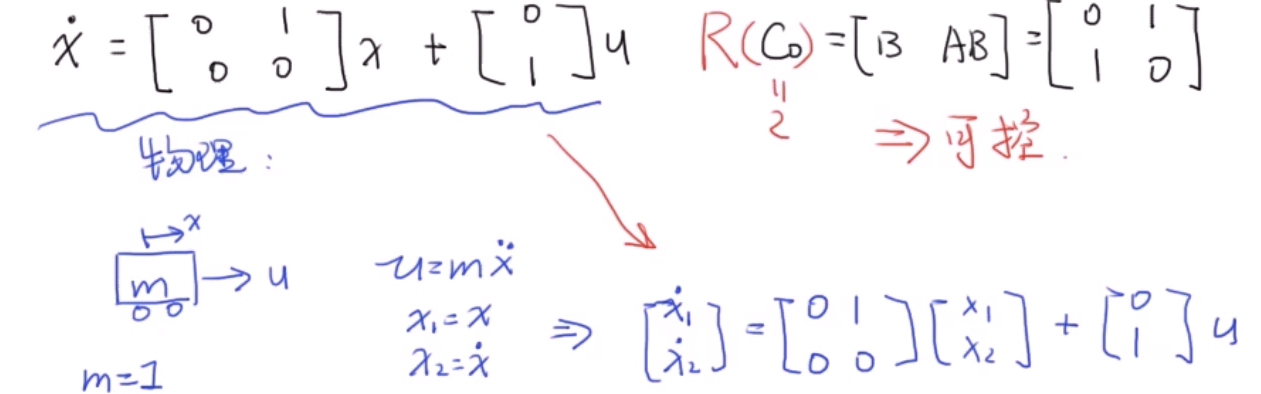 ẋ = [0 1; 0 0] x + [0; 1] u   R(C₀) = [B AB] = [0 1; 1 0]
= 2
⇒ 可控.
物理:
x
m → u
u = mẍ
x₁ = x
x₂ = ẋ
⇒ [ẋ₁; ẋ₂] = [0 1; 0 0] [x₁; x₂] + [0; 1] u
m=1